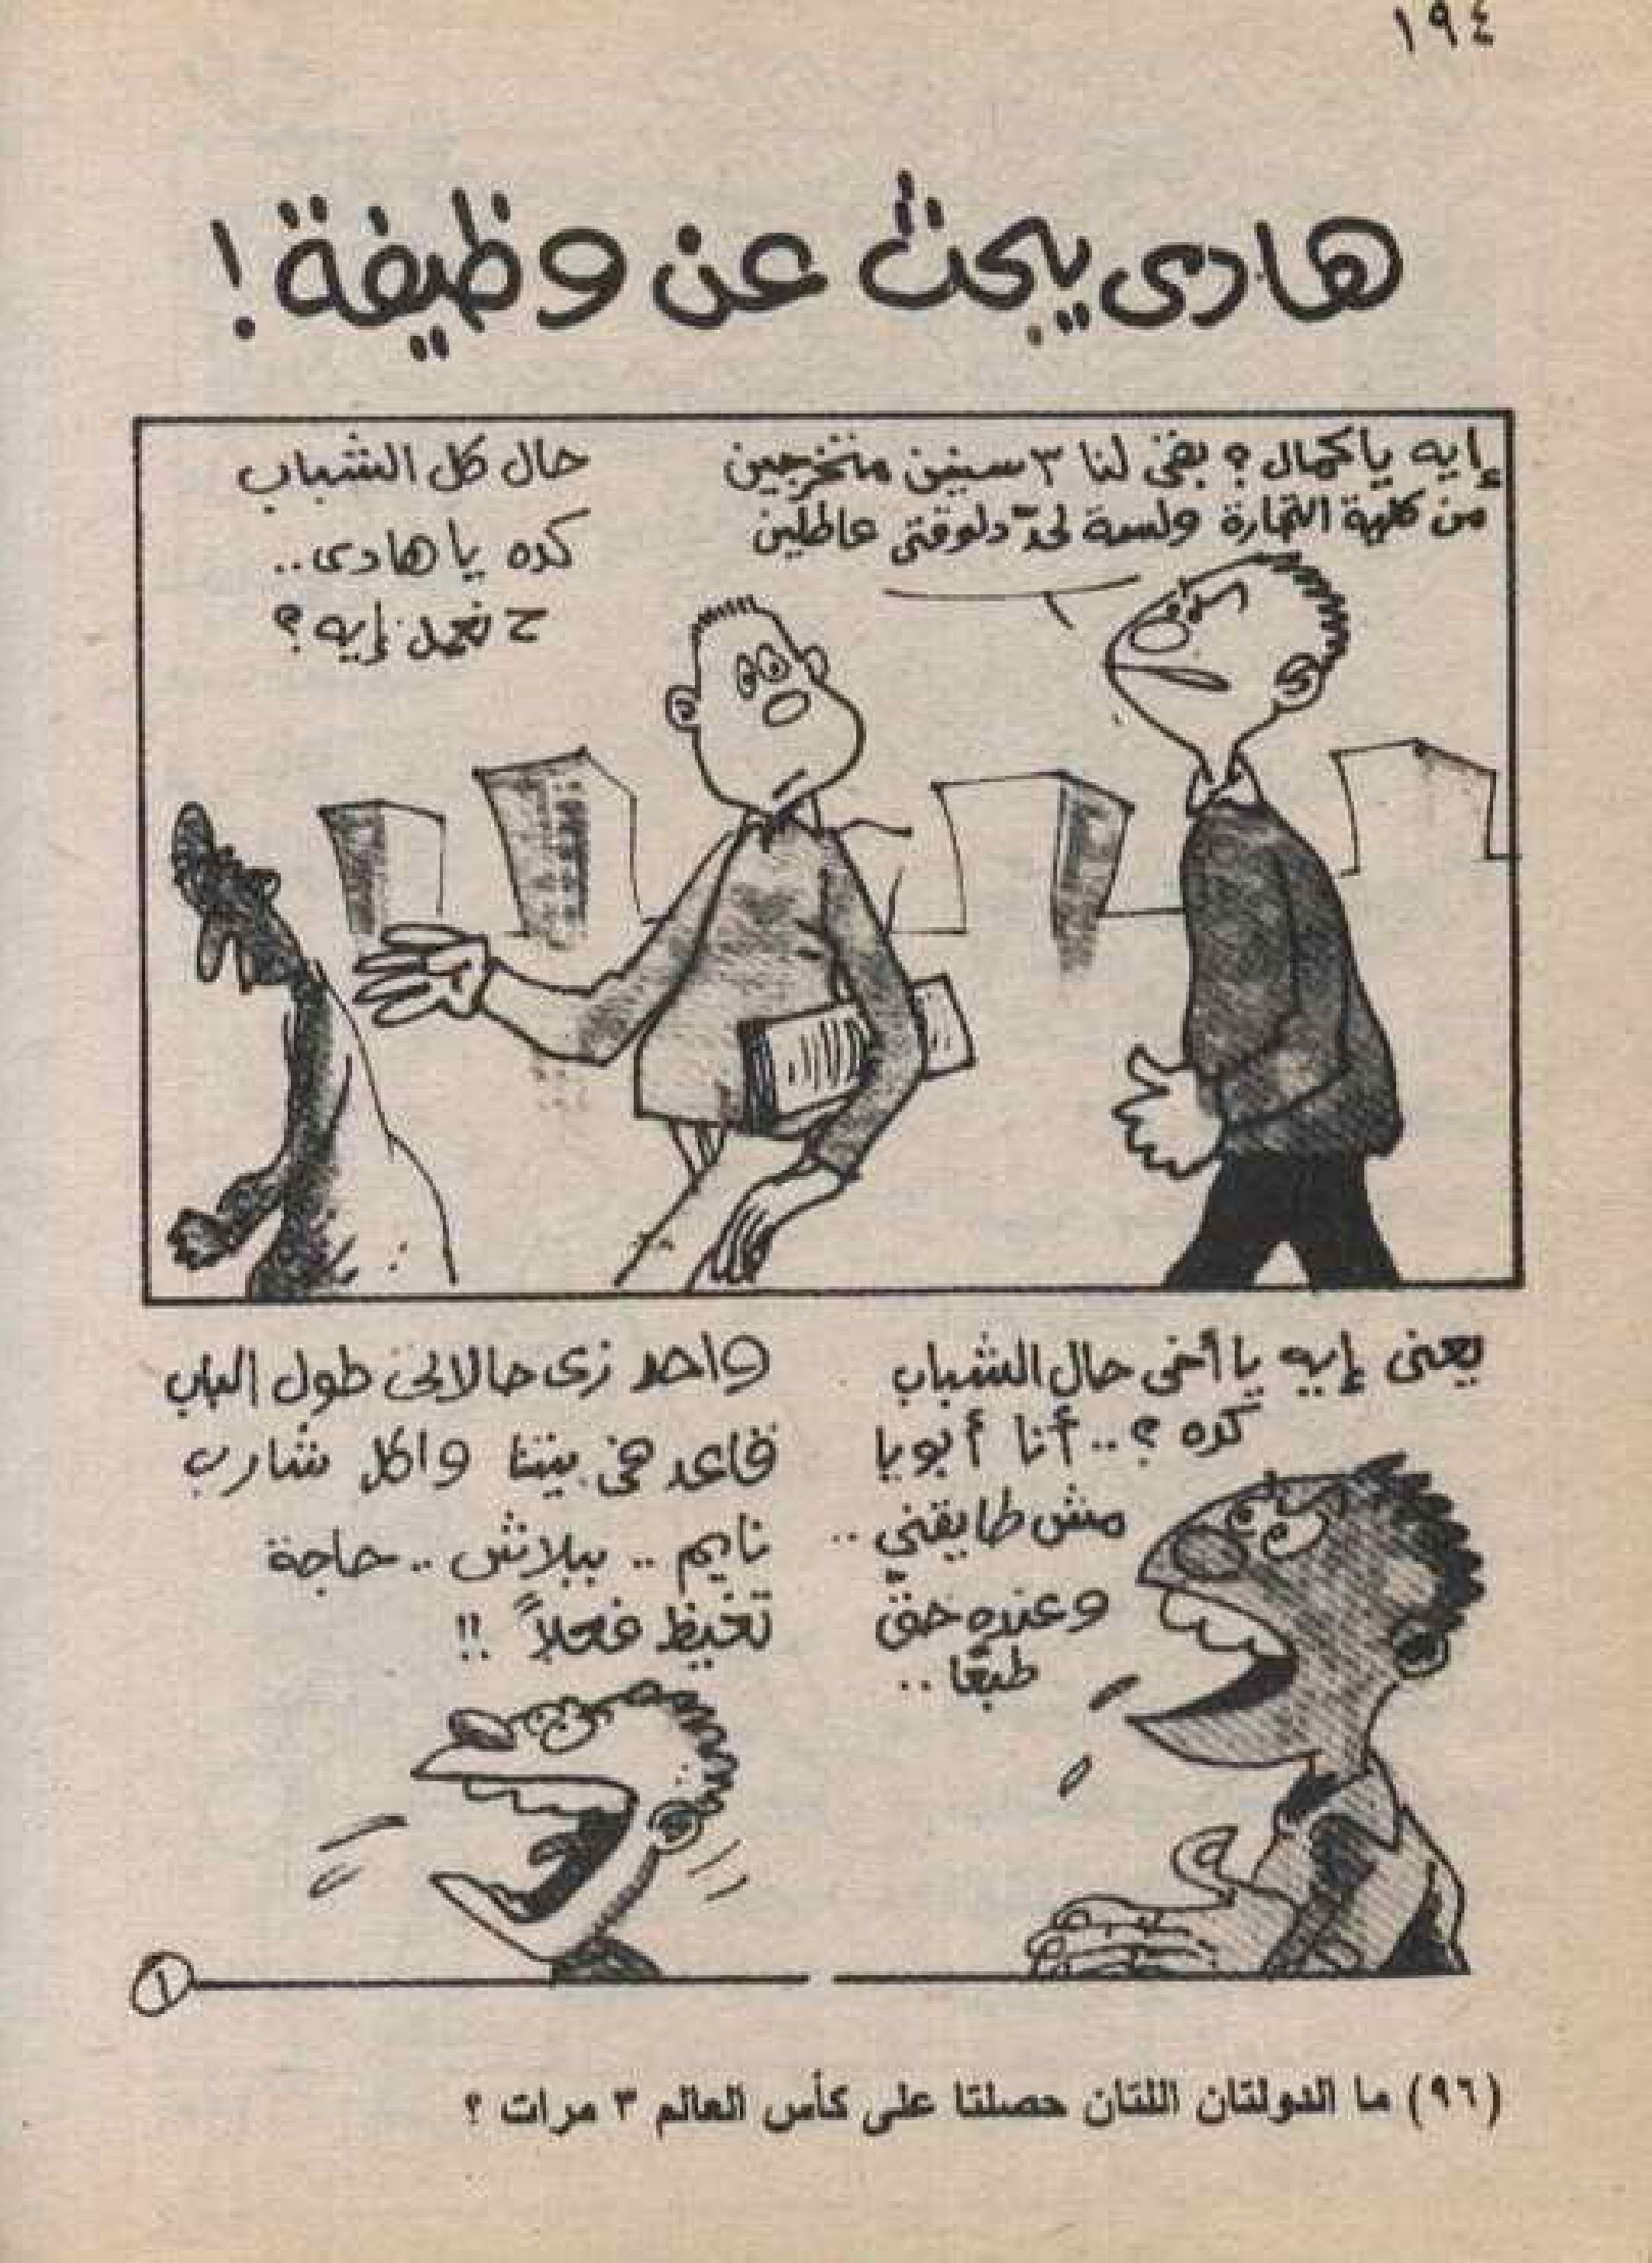 ١٩٤
هادى يبحث عن وظيفة !
إيه يا كمال ؟ بقى لنا ٣ سنين متخرجين
من كلية التجارة ولسة لحدّ دلوقتى عاطلين
حال كل الشباب
كده يا هادى ..
ح نعمل إيه ؟
يعنى إيه يا أخى حال الشباب
كده ؟ .. أنا أبويا
مش طايقنى ..
وعنده حقّ
طبعًا ..
واحد زى حالاتى طول الباب
قاعد فى بيتنا واكل شارب
نايم .. ببلاش .. حاجة
تغيظ فعلاً !!
١
(٩٦) ما الدولتان اللتان حصلتا على كأس العالم ٣ مرات ؟